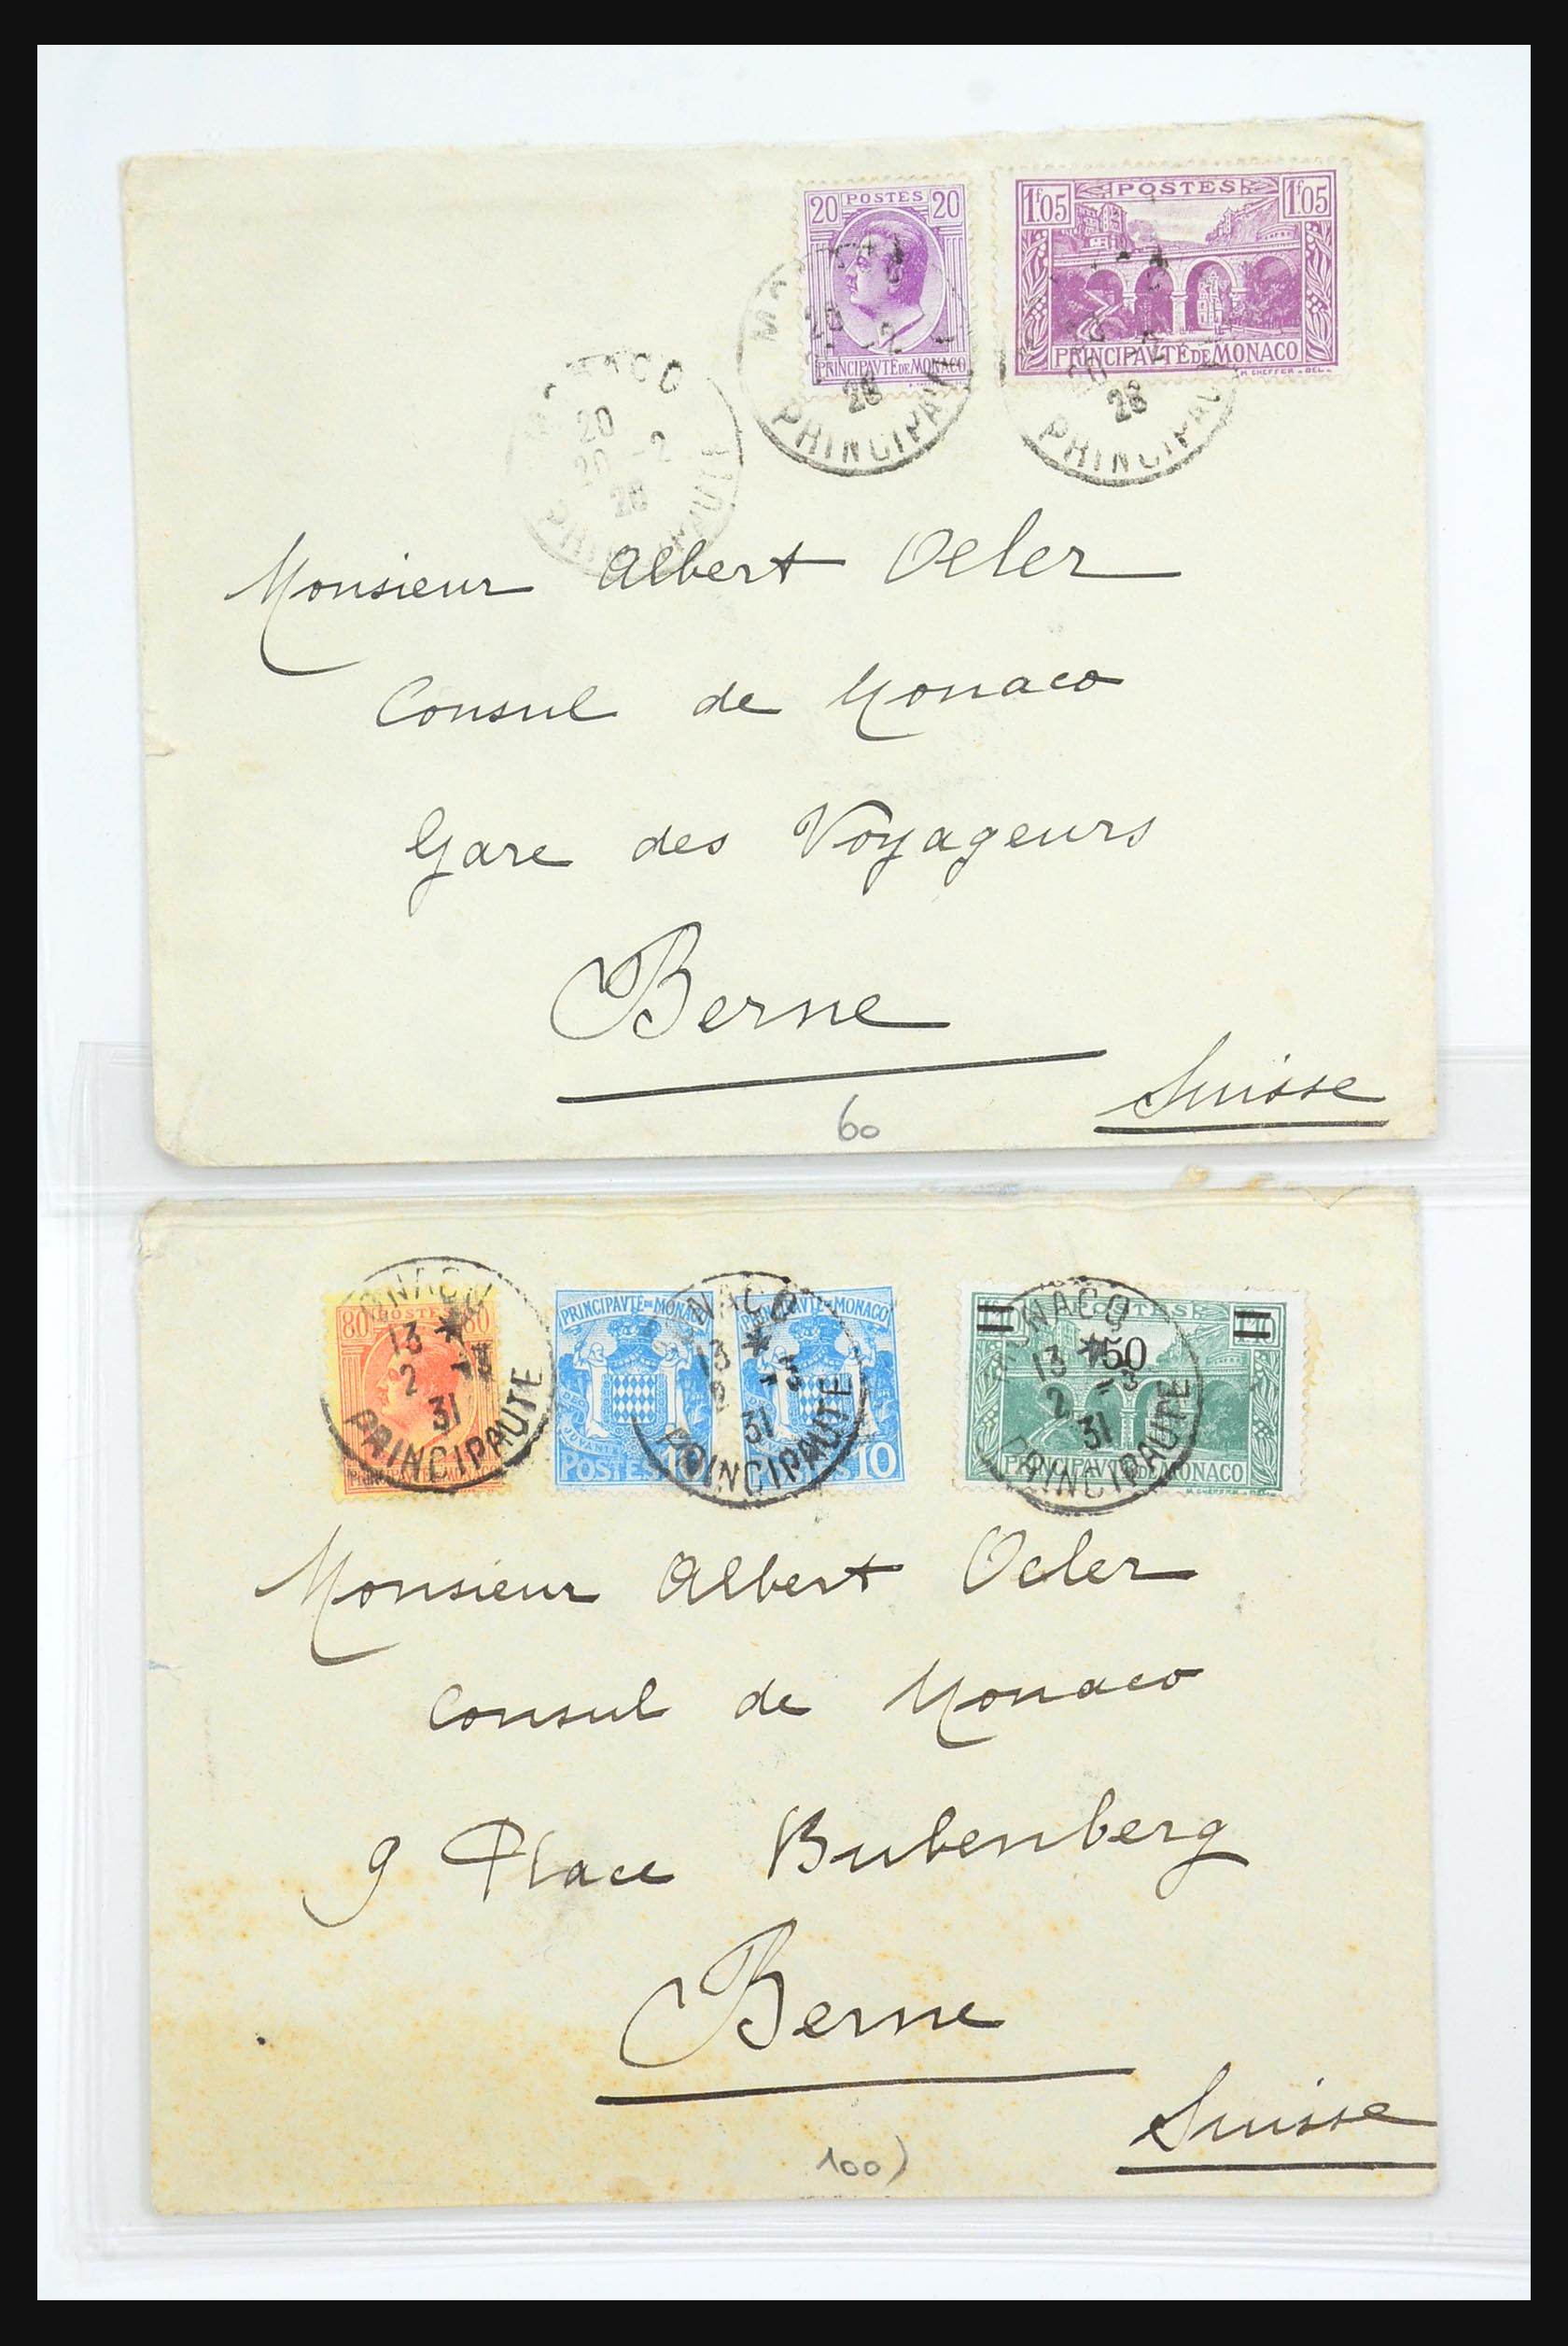 20 POSTES 20
PRINCIPAVTÉ DE MONACO
1f05 POSTES 1f05
PRINCIPAVTÉ DE MONACO
H. CHEFFER . DEL.
MONACO
20
20 -2
28
PRINCIPAUTE
28
PRINCIPAUTE
28
PRINCIPAUTE
Monsieur Albert Oeler
Consul de Monaco
Gare des Voyageurs
Berne
Suisse
60
80 POSTES 80
MONACO
13 *
2 -3
31
PRINCIPAUTE
PRINCIPAVTÉ DE MONACO
POSTES 10
PRINCIPAVTÉ DE MONACO
POSTES 10
MONACO
13 *
2 -3
31
PRINCIPAUTE
POSTES
50
PRINCIPAVTÉ DE MONACO
MONACO
13 *
2 -3
31
PRINCIPAUTE
Monsieur Albert Oeler
Consul de Monaco
9 Place Bubenberg
Berne
Suisse
100)